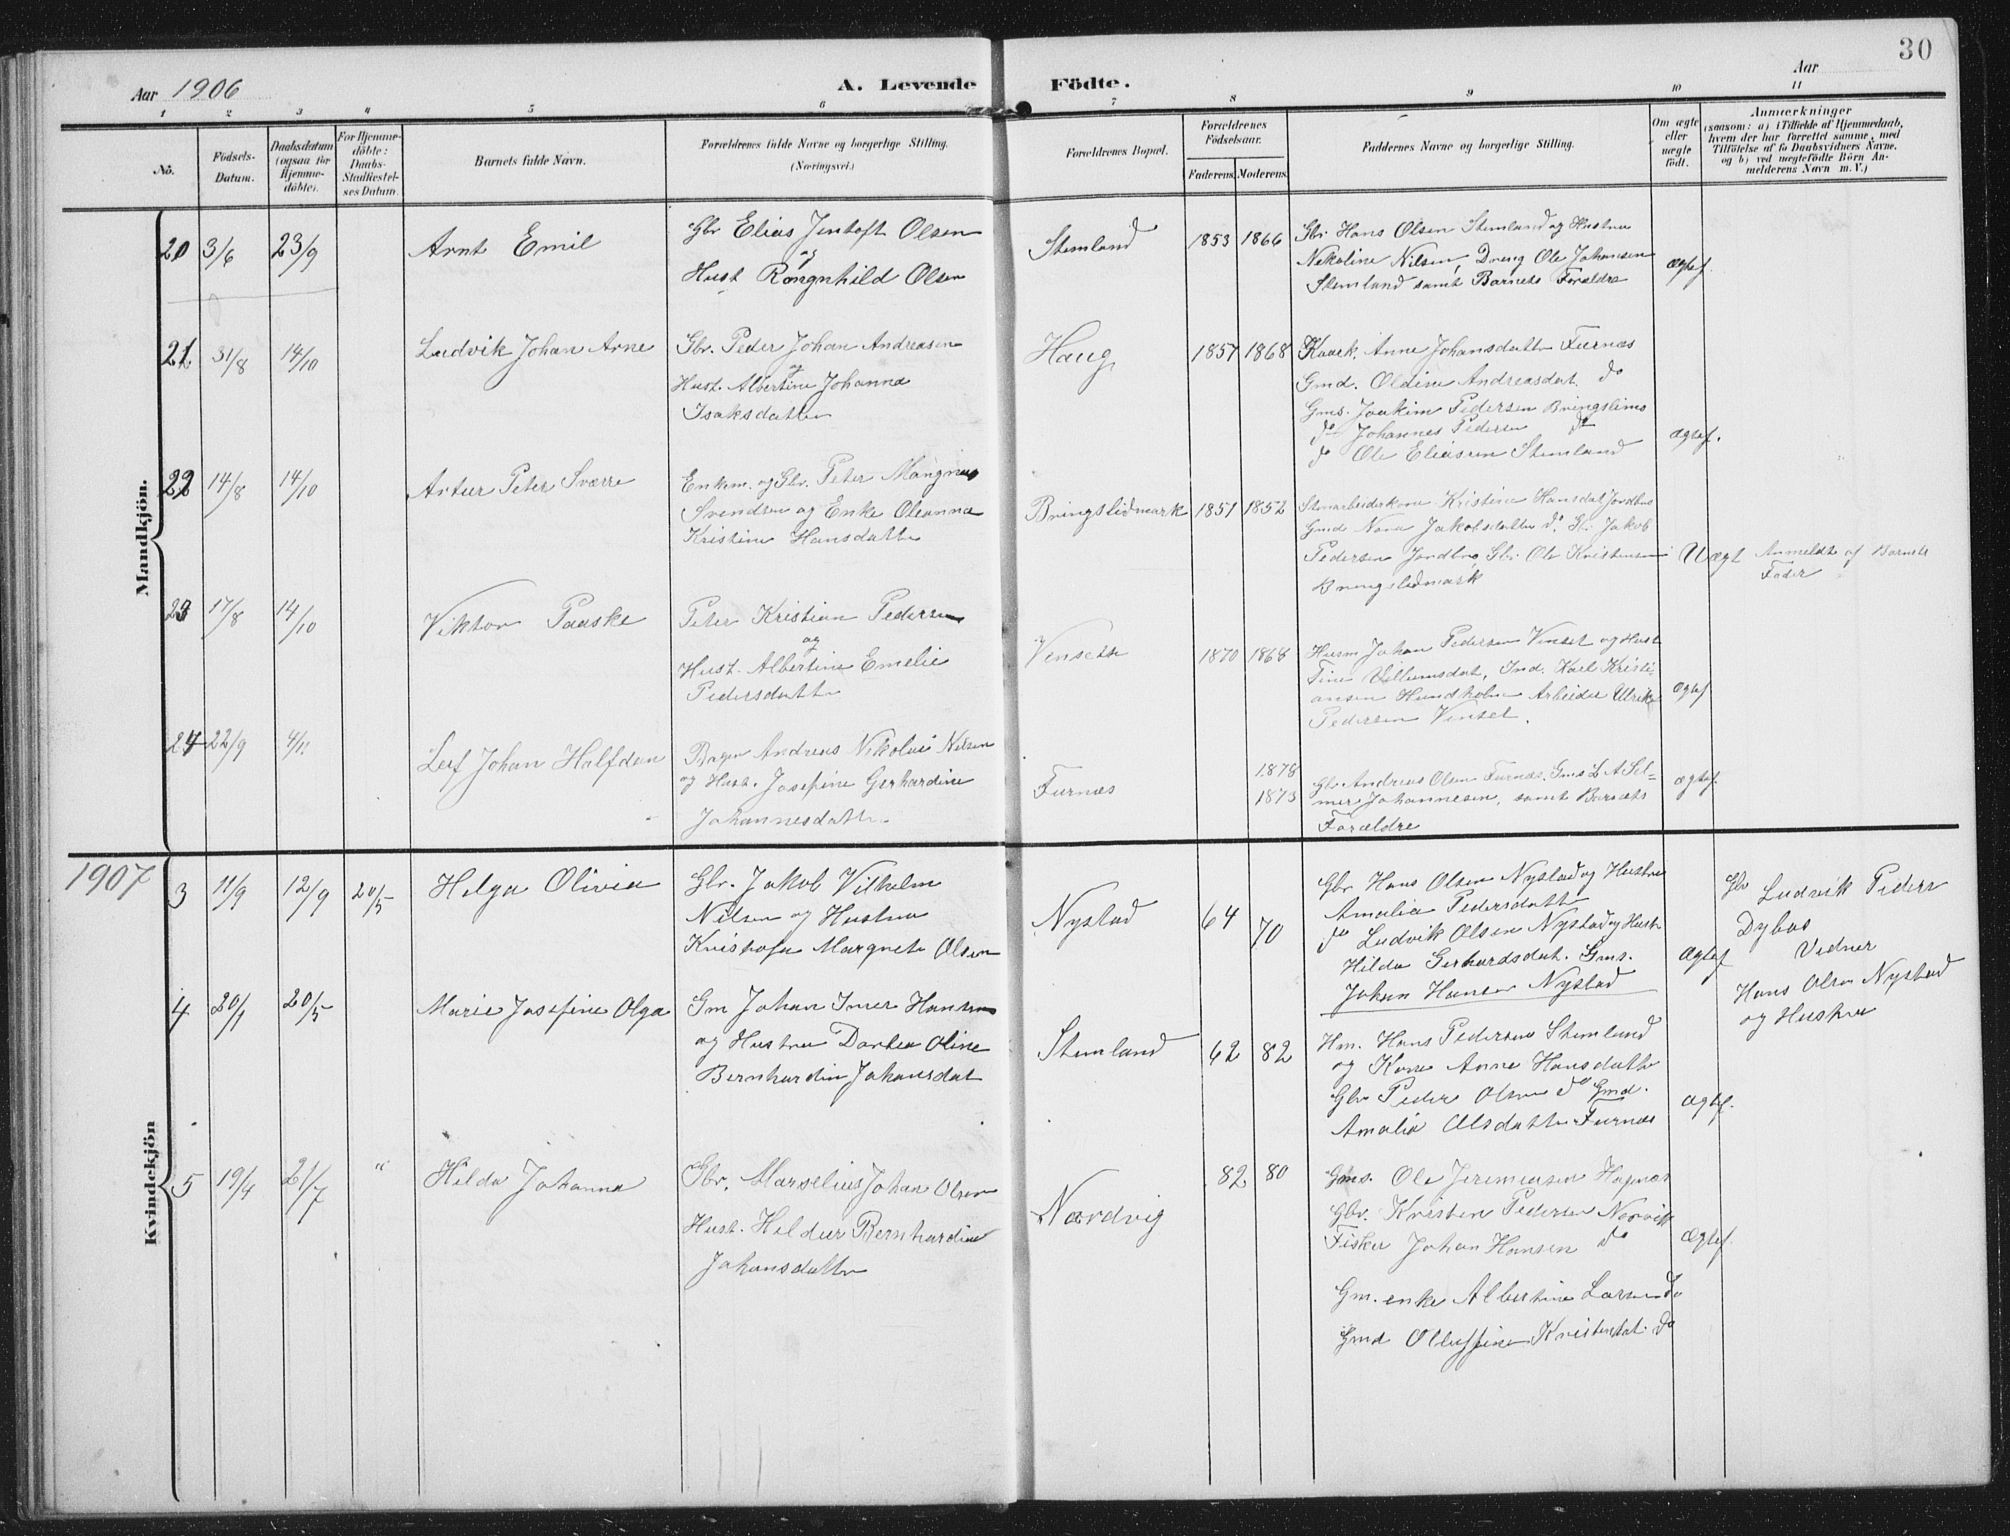 30
Aar 1906
A. Levende Födte.
Aar
1 2 3 4 5 6 7 8 9 10 11
No.
Födsels-
Datum.
Daabsdatum
(ogsaa for
Hjemme-
döbte).
For Hjemme-
döbte:
Daabs-
Stadfæstel-
ses Datum.
Barnets fulde Navn.
Forældrenes fulde Navne og borgerlige Stilling.
(Næringsvei.)
Forældrenes Bopæl.
Forældrenes
Födselsaar.
Faderens. Moderens.
Faddernes Navne og borgerlige Stilling.
Om ægte
eller
uægte
födt.
Anmærkninger
(saasom: a) i Tilfælde af Hjemmedaab,
hvem der har forrettet samme, med
Tilföielse af to Daabsvidners Navne.
og b) ved uægtefödte Börn An-
melderens Navn m. V.)
Mandkjön.
20 3/6 23/9
Arnt Emil
Gbr Elias Jentoft Olsen
og
Hust Rangnhild Olsen
Stemland
1853 1866
Gbr. Hans Olsen Stemland og Hustru
Nekoline Nilsen, Dreng Ole Johansen
Stemland samt Barnets Forældre
ægtef.
21 31/8 14/10
Ludvik Johan Arne
Gbr. Peder Johan Andreasen
og
Hust. Albertine Johanna
Isaksdatter
Haug
1857 1868
Kaark. Anne Johansdatter Furnæs
Gmd. Oldine Andreasdat. do
Gms. Joakim Pedersen Bringslimo
do Johannes Pedersen do
do Ole Eliassen Stemland
ægtef.
22 14/8 14/10
Artur Peter Sværre
Enkem. og Gbr. Peter Mangnus
Svendsen og Enke Oleanna
Kristine Hansdatter
Bringslidmark
1851 1852
Stenarbeiderkone Kristine Hansdat Jordbro
Gmd Nora Jakobsdatter do. Gbr Jakob
Pedersen Jordbro, Gbr. Ole Kristensen
Bringslidmark
Uægt
Anmeldt af Barnets
Fader
23 17/8 14/10
Viktor Paaske
Peter Kristian Pedersen
og
Hust. Albertine Emelie
Pedersdatter
Venseth
1870 1868
Husm Johan Pedersen Venset og Hust
Tine Villumsdat, Ind. Karl Kristi-
ansen Hundholm Arbeider Ulrik
Pedersen Venset.
ægtef
24 22/9 4/11
Leif Johan Halfdan
Andreas Nikolai Nilsen
og Hust. Josefine Gerhardine
Johannesdatter
Furnæs
1878
1873
Gbr Andreas Olsen Furnæs. Gms L A Sel-
mer Johannesen, samt Barnets
Forældre
ægtef.
1907
Kvindekjön
3 11/9 12/9 20/5
Helga Olivia
Gbr. Jakob Vilhelm
Nilsen og Hustru
Kristofa Margrete Olsen
Nystad
64 70
Gbr Hans Olsen Nystad og Hustru
Amalia Pedersdatter
do Ludvik Olsen Nystad og Hust
Hilda Gerhardsdat. Gms.
Johan Hansen Nystad
ægtef
Gbr Ludvik Peders
Dybos
Vidner
Hans Olsen Nystad
og Hustru
4 20/1 20/5
Marie Josefine Olga
Gm Johan Imer Hansen
og Hustru Dortea Oline
Bernhardin Johansdat
Stemland
62 82
Hm. Hans Pedersen Stemland
og Kone Anne Hansdatter
Gbr Peder Olsen do Gmd.
Amalia Olsdatter Furnæs
ægtef.
5 19/4 21/7 "
Hilda Johanna
Gbr. Marselius Johan Olsen
Hust. Hildur Bernhardine
Johansdatter
Nordvig
82 80
Gms. Ole Jeremiassen Hopnæs
Gbr. Kristen Pedersen Norvik
Fisker Johan Hansen do
Gm. enke Albertine Larsen do
Gmd Olluffine Kristendat. do
ægtef.